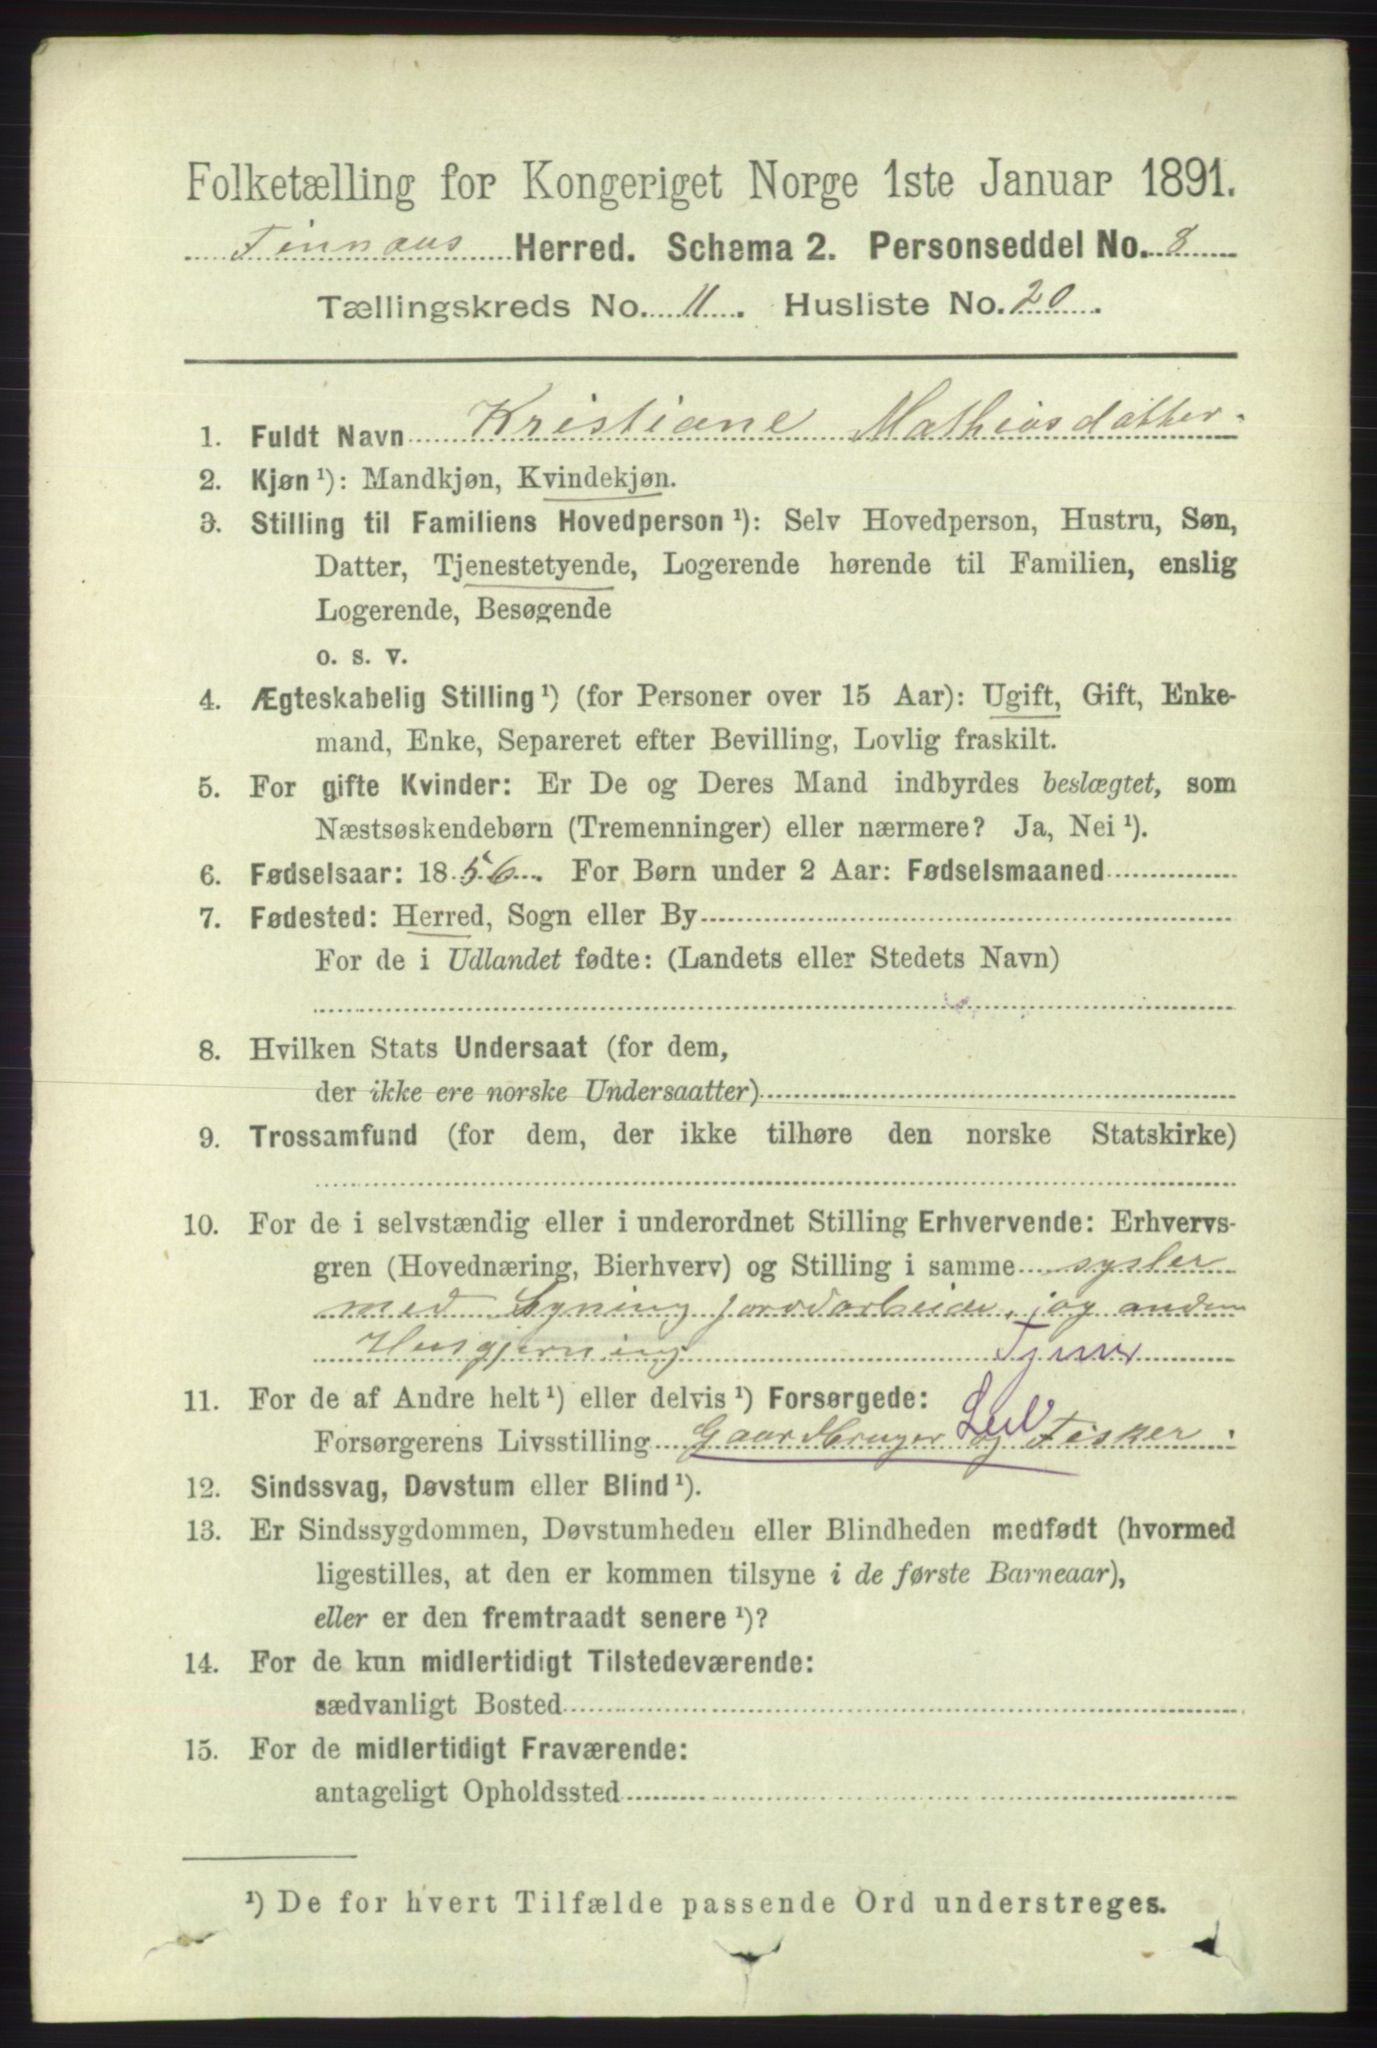 Folketælling for Kongeriget Norge 1ste Januar 1891.
Finnaas Herred. Schema 2. Personseddel No. 8
Tællingskreds No. 11. Husliste No. 20.
1. Fuldt Navn Kristiane Mathiasdatter.
2. Kjøn ¹): Mandkjøn, Kvindekjøn.
3. Stilling til Familiens Hovedperson ¹): Selv Hovedperson, Hustru, Søn,
Datter, Tjenestetyende, Logerende hørende til Familien, enslig
Logerende, Besøgende
o. s. v.
4. Ægteskabelig Stilling ¹) (for Personer over 15 Aar): Ugift, Gift, Enke-
mand, Enke, Separeret efter Bevilling, Lovlig fraskilt.
5. For gifte Kvinder: Er De og Deres Mand indbyrdes beslægtet, som
Næstsøskendebørn (Tremenninger) eller nærmere? Ja, Nei ¹).
6. Fødselsaar: 1856. For Børn under 2 Aar: Fødselsmaaned
7. Fødested: Herred, Sogn eller By
For de i Udlandet fødte: (Landets eller Stedets Navn)
8. Hvilken Stats Undersaat (for dem,
der ikke ere norske Undersaatter)
9. Trossamfund (for dem, der ikke tilhøre den norske Statskirke)
10. For de i selvstændig eller i underordnet Stilling Erhvervende: Erhvervs-
gren (Hovednæring, Bierhverv) og Stilling i samme sysler
med Syning jordarbeide, og anden
Husgjerning Tjener
11. For de af Andre helt ¹) eller delvis ¹) Forsørgede:
Forsørgerens Livsstilling Gaardbruger og Fisker
12. Sindssvag, Døvstum eller Blind ¹).
13. Er Sindssygdommen, Døvstumheden eller Blindheden medfødt (hvormed
ligestilles, at den er kommen tilsyne i de første Barneaar),
eller er den fremtraadt senere ¹)?
14. For de kun midlertidigt Tilstedeværende:
sædvanligt Bosted
15. For de midlertidigt Fraværende:
antageligt Opholdssted
¹) De for hvert Tilfælde passende Ord understreges.